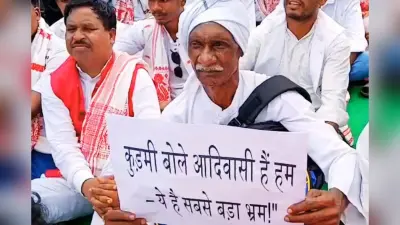 कुड़मी बोले आदिवासी हैं हम
–ये है सबसे बड़ा भ्रम!"